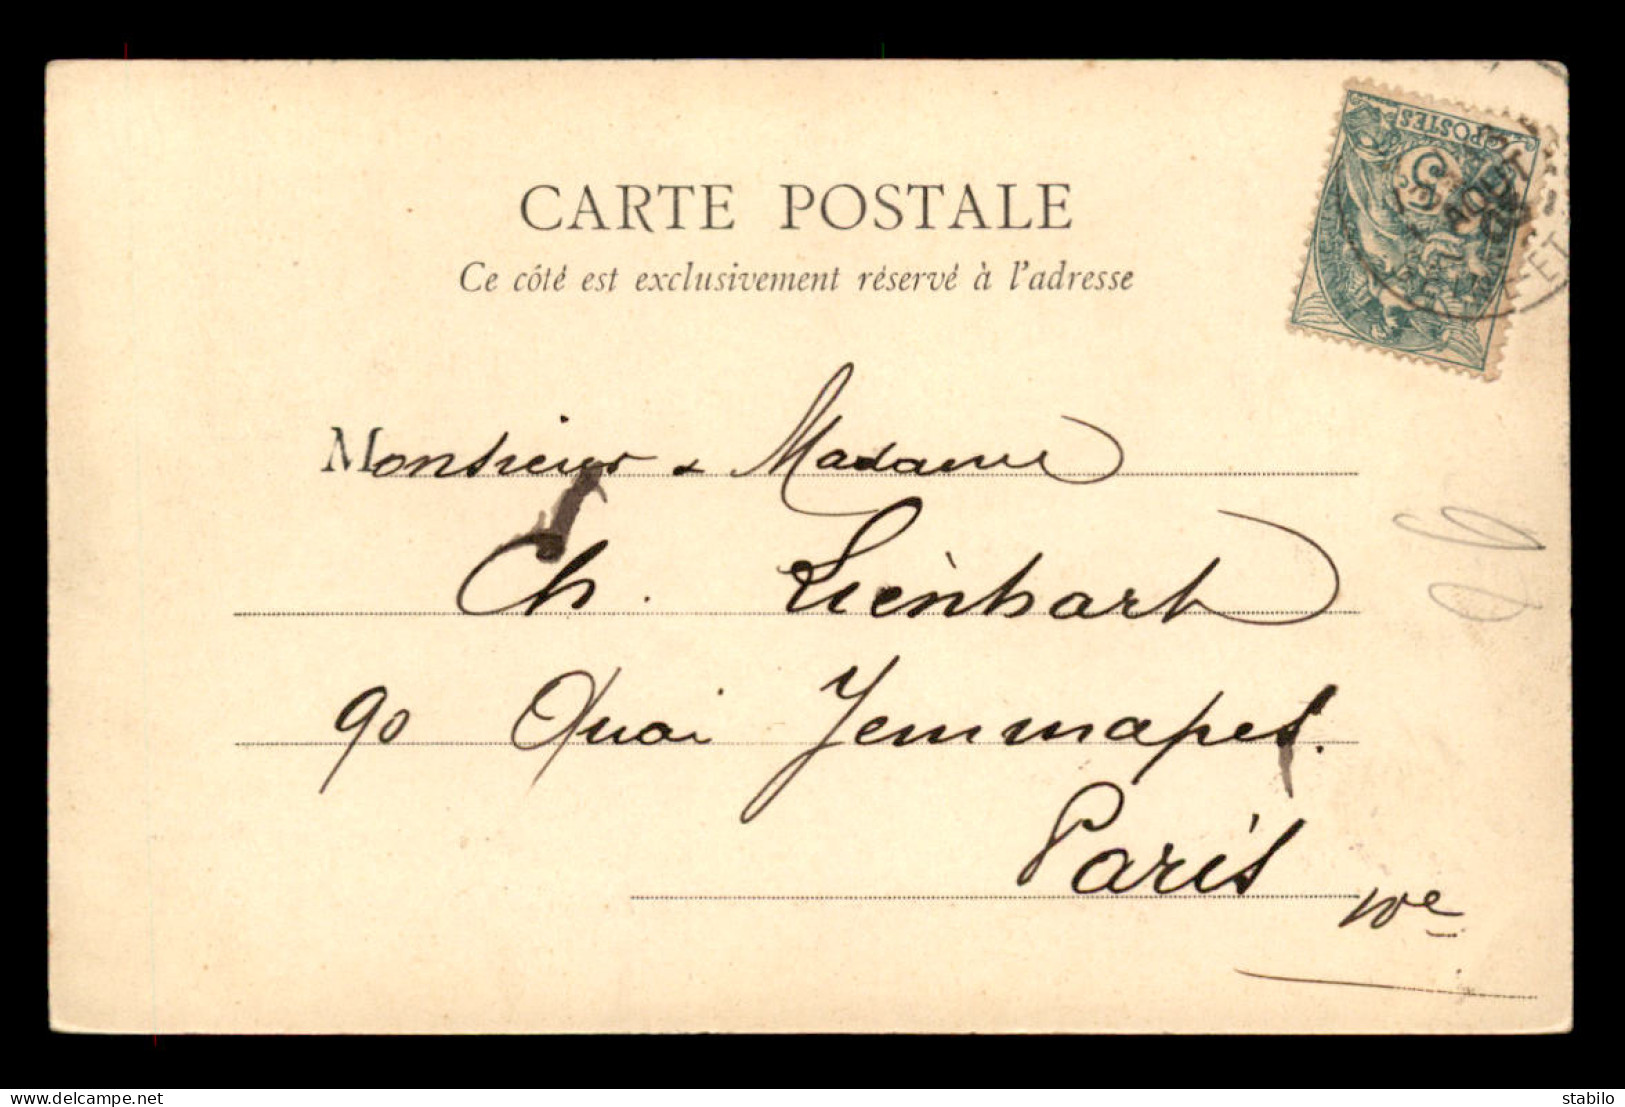 CARTE POSTALE
Ce côté est exclusivement réservé à l'adresse
POSTES
5
AOUT
Monsieur & Madame
Ch. Liénhart
90 Quai Jemmapes.
Paris
Xe
26
www.delcampe.net
stabilo